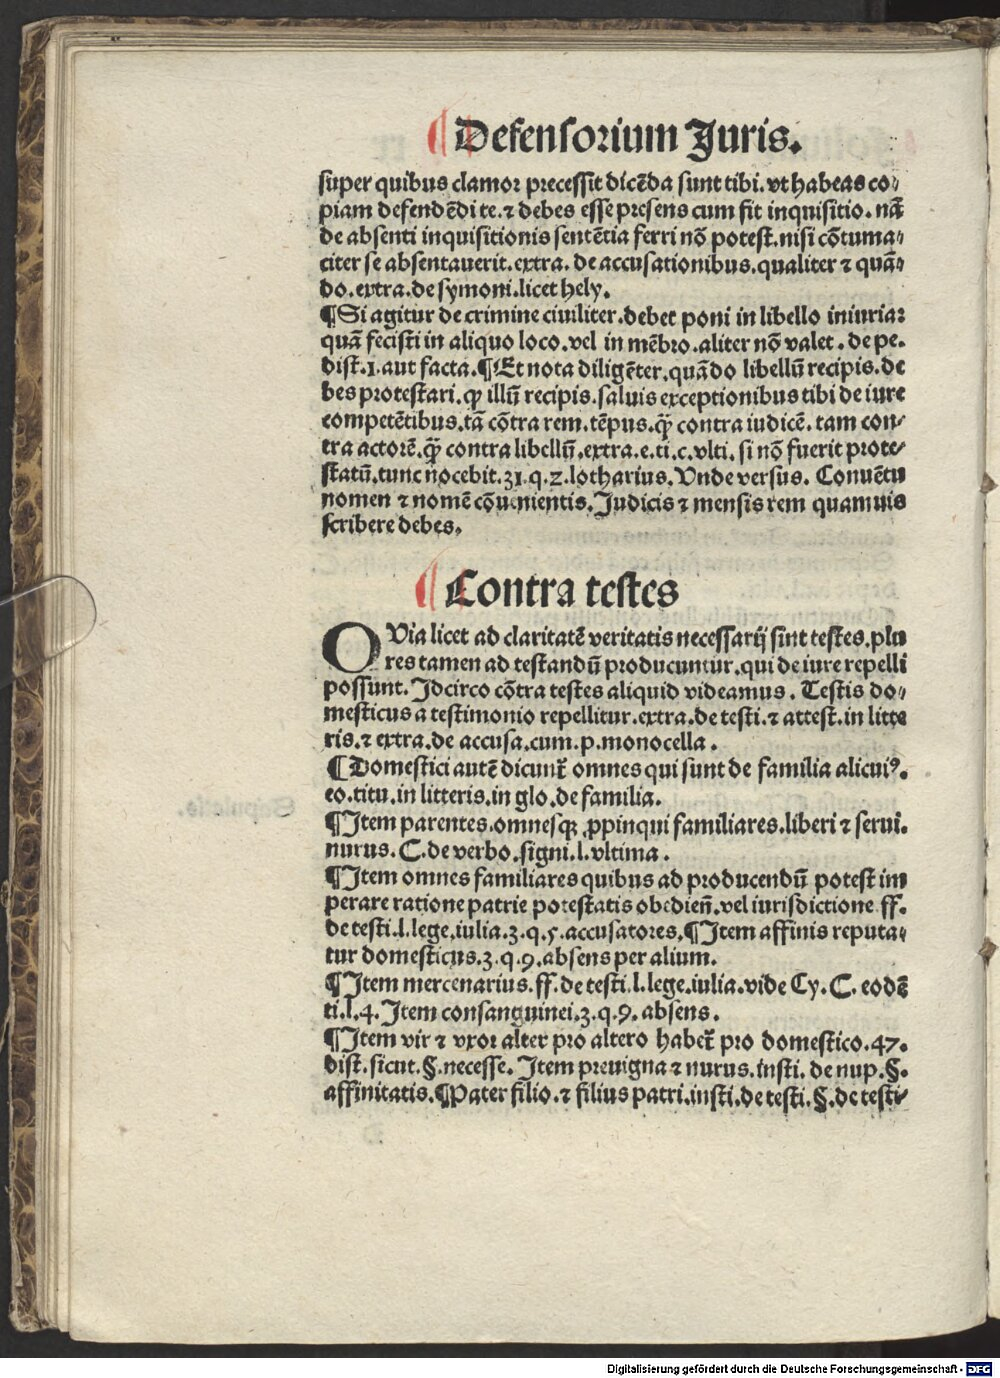 ¶ Defensorium Juris.
super quibus clamor precessit dicēda sunt tibi. vt habeas co⸗
piam defendēdi te. ⁊ debes esse presens cum fit inquisitio. nā
de absenti inquisitionis sentētia ferri nō potest. nisi cōtuma⸗
citer se absentauerit. extra. de accusationibus. qualiter ⁊ quā⸗
do. extra. de symoni. licet hely.
¶Si agitur de crimine ciuiliter. debet poni in libello iniuriaꝫ
quā fecisti in aliquo loco. vel in mēbro. aliter nō valet. de pe.
dist. 1. aut facta. ¶Et nota diligēter. quādo libellū recipis. de
bes protestari. ꝙ illū recipis. saluis exceptionibus tibi de iure
competētibus. tā cōtra rem. tēpus. q̄ꝫ contra iudicē. tam con⸗
tra actorē. q̄ꝫ contra libellū. extra. e. ti. c. vlti. si nō fuerit prote⸗
statū. tunc nocebit. 31. q. 2. lotharius. Vnde versus. Conuētu
nomen ⁊ nomē cōuenientis. Judicis ⁊ mensis rem quamuis
scribere debes.
¶ Contra testes
QVia licet ad claritatē veritatis necessarij sint testes. plu
res tamen ad testandū producuntur. qui de iure repelli
possunt. Jdcirco cōtra testes aliquid videamus. Testis do⸗
mesticus a testimonio repellitur. extra. de testi. ⁊ attest. in litte
ris. ⁊ extra. de accusa. cum. p. monocella.
¶Domestici autē dicunt̄ omnes qui sunt de familia alicuiꝰ.
eo. titu. in litteris. in glo. de familia.
¶Jtem parentes. omnesqꝫ ꝓpinqui familiares. liberi ⁊ serui.
nurus. C. de verbo. signi. l. vltima.
¶Jtem omnes familiares quibus ad producendū potest im
perare ratione patrie potestatis obedien̄. vel iurisdictione ff.
de testi. l. lege. iulia. 3. q. 5. accusatores. ¶Jtem affinis reputa⸗
tur domesticus. 3. q. 9. absens per alium.
¶Jtem mercenarius. ff. de testi. l. lege. iulia. vide Cy. C. eodē
ti. l. 4. Jtem consanguinei. 3. q. 9. absens.
¶Jtem vir ⁊ vxor alter pro altero habet̄ pro domestico. 47.
dist. sicut. §. necesse. Jtem preuigna ⁊ nurus. insti. de nup. §.
affinitatis. ¶Pater filio. ⁊ filius patri. insti. de testi. §. de testi⸗
Digitalisierung gefördert durch die Deutsche Forschungsgemeinschaft - DFG